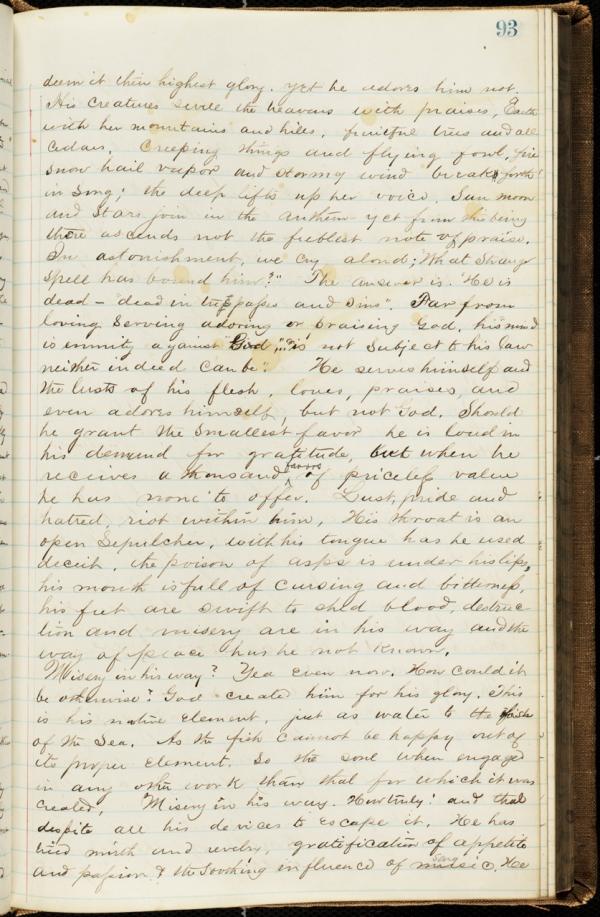 93
deem it their highest glory. yet he adores him not.
His creatures swell the heavens with praises, Earth
with her mountains and hills, fruitful trees and all
Cedars. Creeping things and flying fowl, fire
snow hail vapor and stormy wind break forth
in song; the deep lifts up her voice. Sun moon
and stars join in the anthem yet from this being
there ascends not the feeblest note of praise.
In astonishment, we cry, aloud; What strange
spell has bound him?" The answer is. He is
dead — "dead in trespasses and sins". Far from
loving serving adoring or praising God, his mind
is enmity against God, "is not subject to his law
neither indeed can be". He serves himself and
the lusts of his flesh, loves, praises, and
even adores himself, but not God. Should
he grant the smallest favor he is loud in
his demand for gratitude, but when he
receives a thousand favors of priceless value
he has none to offer. Lust, pride and
hatred, riot within him, His throat is an
open Sepulcher, with his tongue has he used
deceit, the poison of asps is under his lips,
his mouth is full of cursing and bitterness,
his feet are swift to shed blood, destruc
tion and misery are in his way and the
way of peace has he not known.
Misery in his way? Yea even now. How could it
be otherwise? God created him for his glory. This
is his native element, just as water to the fish
of the Sea. As the fish cannot be happy out of
its proper element. So the soul when engaged
in any other work than that for which it was
created, Misery in his way. How truly! and that
despite all his devices to escape it. He has
tried mirth and revelry, gratification of appetite
and passion & the soothing influence of song music. He